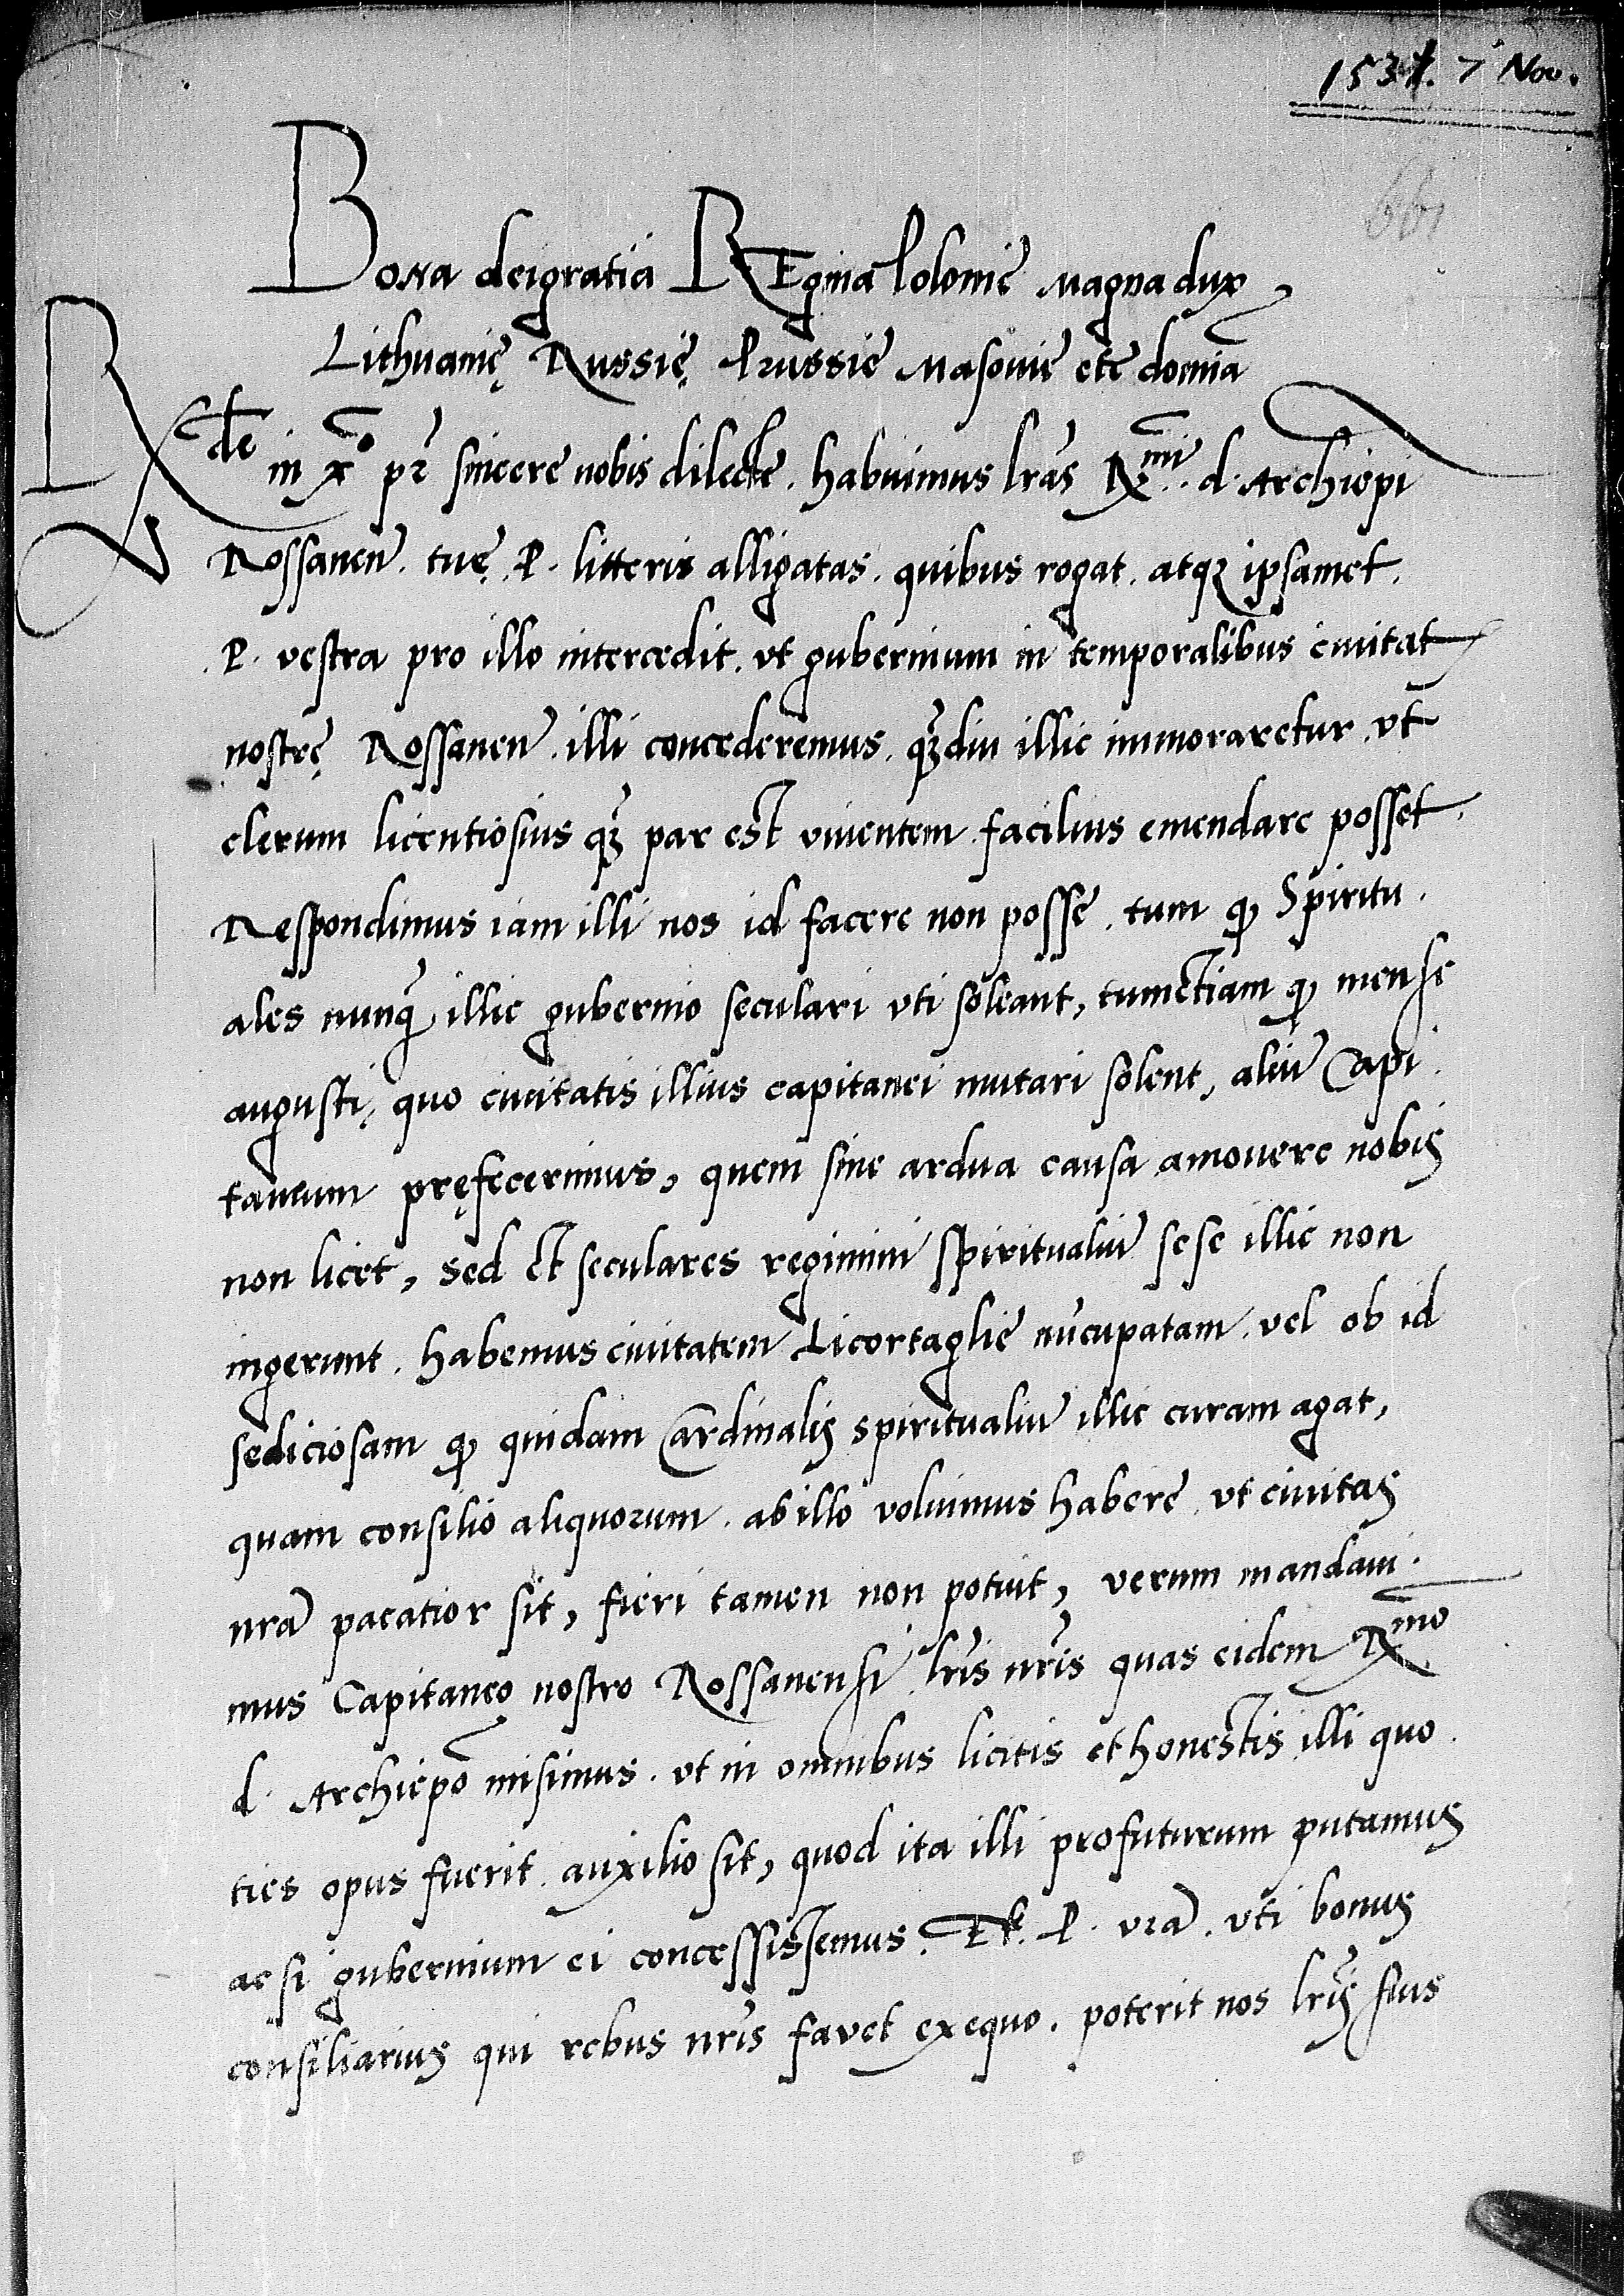 1537. 7 Nov.
661
Bona dei gratia Regina Polonie Magna dux
Lithuanię Russię Prussie Masovie etc̄ domina
R<sup>de</sup> in xp̄o pr̄ sincere nobis dilecte. habuimus lrās R<sup>mi</sup>. d. Archiepi
Rossaneñ. tuę .P. litteris alligatas. quibus rogat. atqꝫ ipsamet.
.P. vestra pro illo intercedit. vt gubernium in temporalibus ciuitat
nostrę Rossaneñ. illi concederemus. qꝫdiu illic immoraretur. vt
clerum licentiosius qꝫ par est viuentem facilius emendare posset.
Respondimus iam illi nos id facere non posse. tum qꝫ Spiritu.
ales nunqꝫ illic gubernio seculari vti soleant, tumetiam qꝫ mense
augusti, quo ciuitatis illius capitanei mutari solent, aliū Capi.
taneum pręfecerimus, quem sine ardua causa amouere nobis
non licet, sed et seculares regimini spiritualiū sese illic non
ingerunt. habemus ciuitatem Licortaglie nūcupatam. vel ob id
sediciosam qꝫ quidam Cardinalis spiritualiū illic curam agat,
quam consilio aliquorum. ab illo voluimus habere. vt ciuitas
nrā pacatior sit, fieri tamen non potuit, verum mandaui.
mus Capitaneo nostro Rossanensi lr̄is nr̄is quas eidem R<sup>mo</sup>
d. Archiepō misimus. vt in omnibus licitis et honestis illi quo.
ties opus fuerit. auxilio sit, quod ita illi profuturum putamus
ac si gubernium ei concessissemus. Et. P. vrā. vti bonus
consiliarius qui rebus nr̄is favet ex equo. poterit nos lr̄is suis